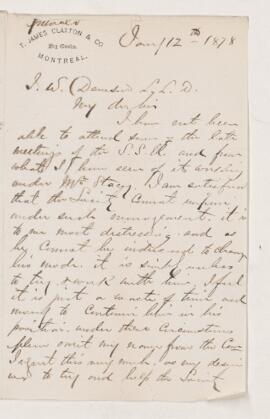 T. JAMES CLAXTON & CO
Dry Goods.
MONTREAL.
Jany 12th 1878
J. W. Dawson L.L.D.
My dr Sir
I have not been
able to attend some of the late
meetings of the S.S.U. and from
what I have seen of its working
under Mr Stacey I am satisfied
that the Society cannot
under such management it is
to me most distressing and as
he cannot be induced to change
his mode it is useless
to try & work with him. I feel
it is just a waste of time and
money to continue him in his
position under these circumstances
please omit my name from the Com
I regret this very much as my desire
was to try and help the Society